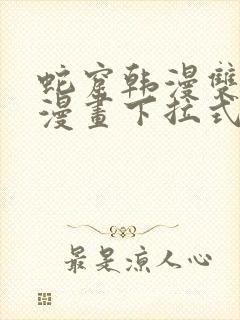 蛇窟韩漫双
漫畫下拉式
最是凉人心